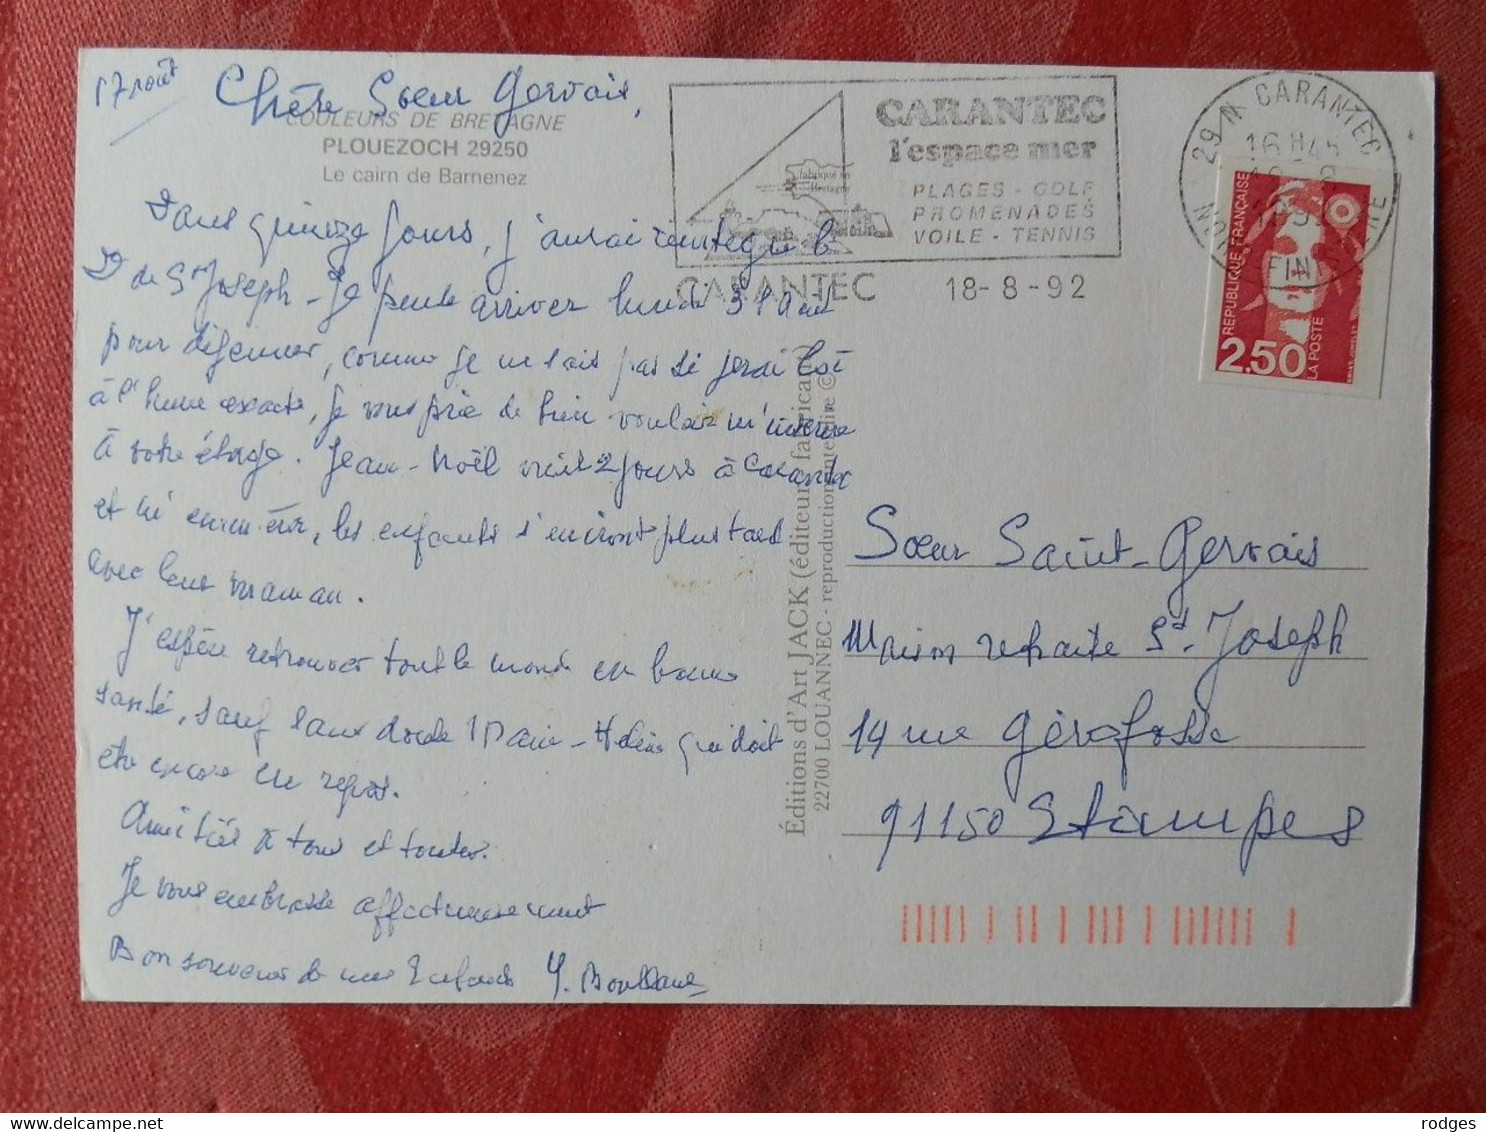 17 août
Chère Soeur Gervais,
COULEURS DE BRETAGNE
PLOUEZOCH 29250
Le cairn de Barnenez
Dans quinze jours, j'aurai réintégré le
de St Joseph - Je pense arriver lundi 31 Août
pour déjeuner, comme je ne sais pas si je serai
à l'heure exacte, je vous prie de bien vouloir m'inscrire
à votre étage. Jean-Noël vient 2 jours à Carantec
et m'emmener, les enfants s'en iront plus tard
avec leur maman.
J'espère retrouver tout le monde en bonne
santé, sauf sans doute Marie-Hélène qui doit
être encore en repos.
Amitiés à tous et toutes.
Je vous embrasse affectueusement
Bon souvenir de mes Enfants Y.
Éditions d'Art JACK (éditeur fabricant)
22700 LOUANNEC - reproduction interdite ©
fabriqué en
Bretagne
CARANTEC
l'espace mer
PLAGES - GOLF
PROMENADES
VOILE - TENNIS
CARANTEC 18-8-92
29 N CARANTEC
16 H 45
FINISTERE
REPUBLIQUE FRANÇAISE
2.50
LA POSTE
Soeur Saint-Gervais
Maison retraite St. Joseph
14 rue Gérofosse
91150 Etampes
rodges